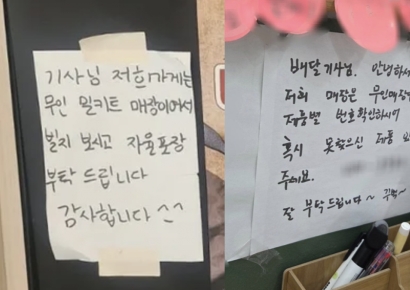 기사님 저희가게는
무인 밀키트 매장이어서
빌지 보시고 자율포장
부탁 드립니다
감사합니다 ^^
배달기사님. 안녕하세
저희 매장은 무인매장
제품별 번호확인하시어
혹시 못찾으신 제품
주세요.
잘 부탁드립니다~ 꾸벅~